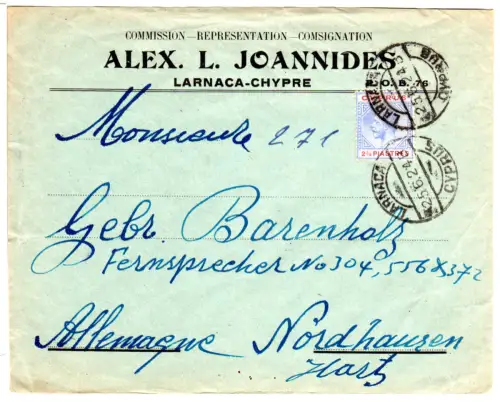 COMMISSION—REPRESENTATION—COMSIGNATION
ALEX. L. JOANNIDES
LARNACA-CHYPRE
P. O. B. 76
CYPRUS
2½ PIASTRES
LARNACA
CYPRUS
LARNACA
25.6.24
CYPRUS
Monsieur 271
Gebr. Barenholz
Fernsprecher No 304, 556 & 372
Allemagne Nordhausen
Hartz